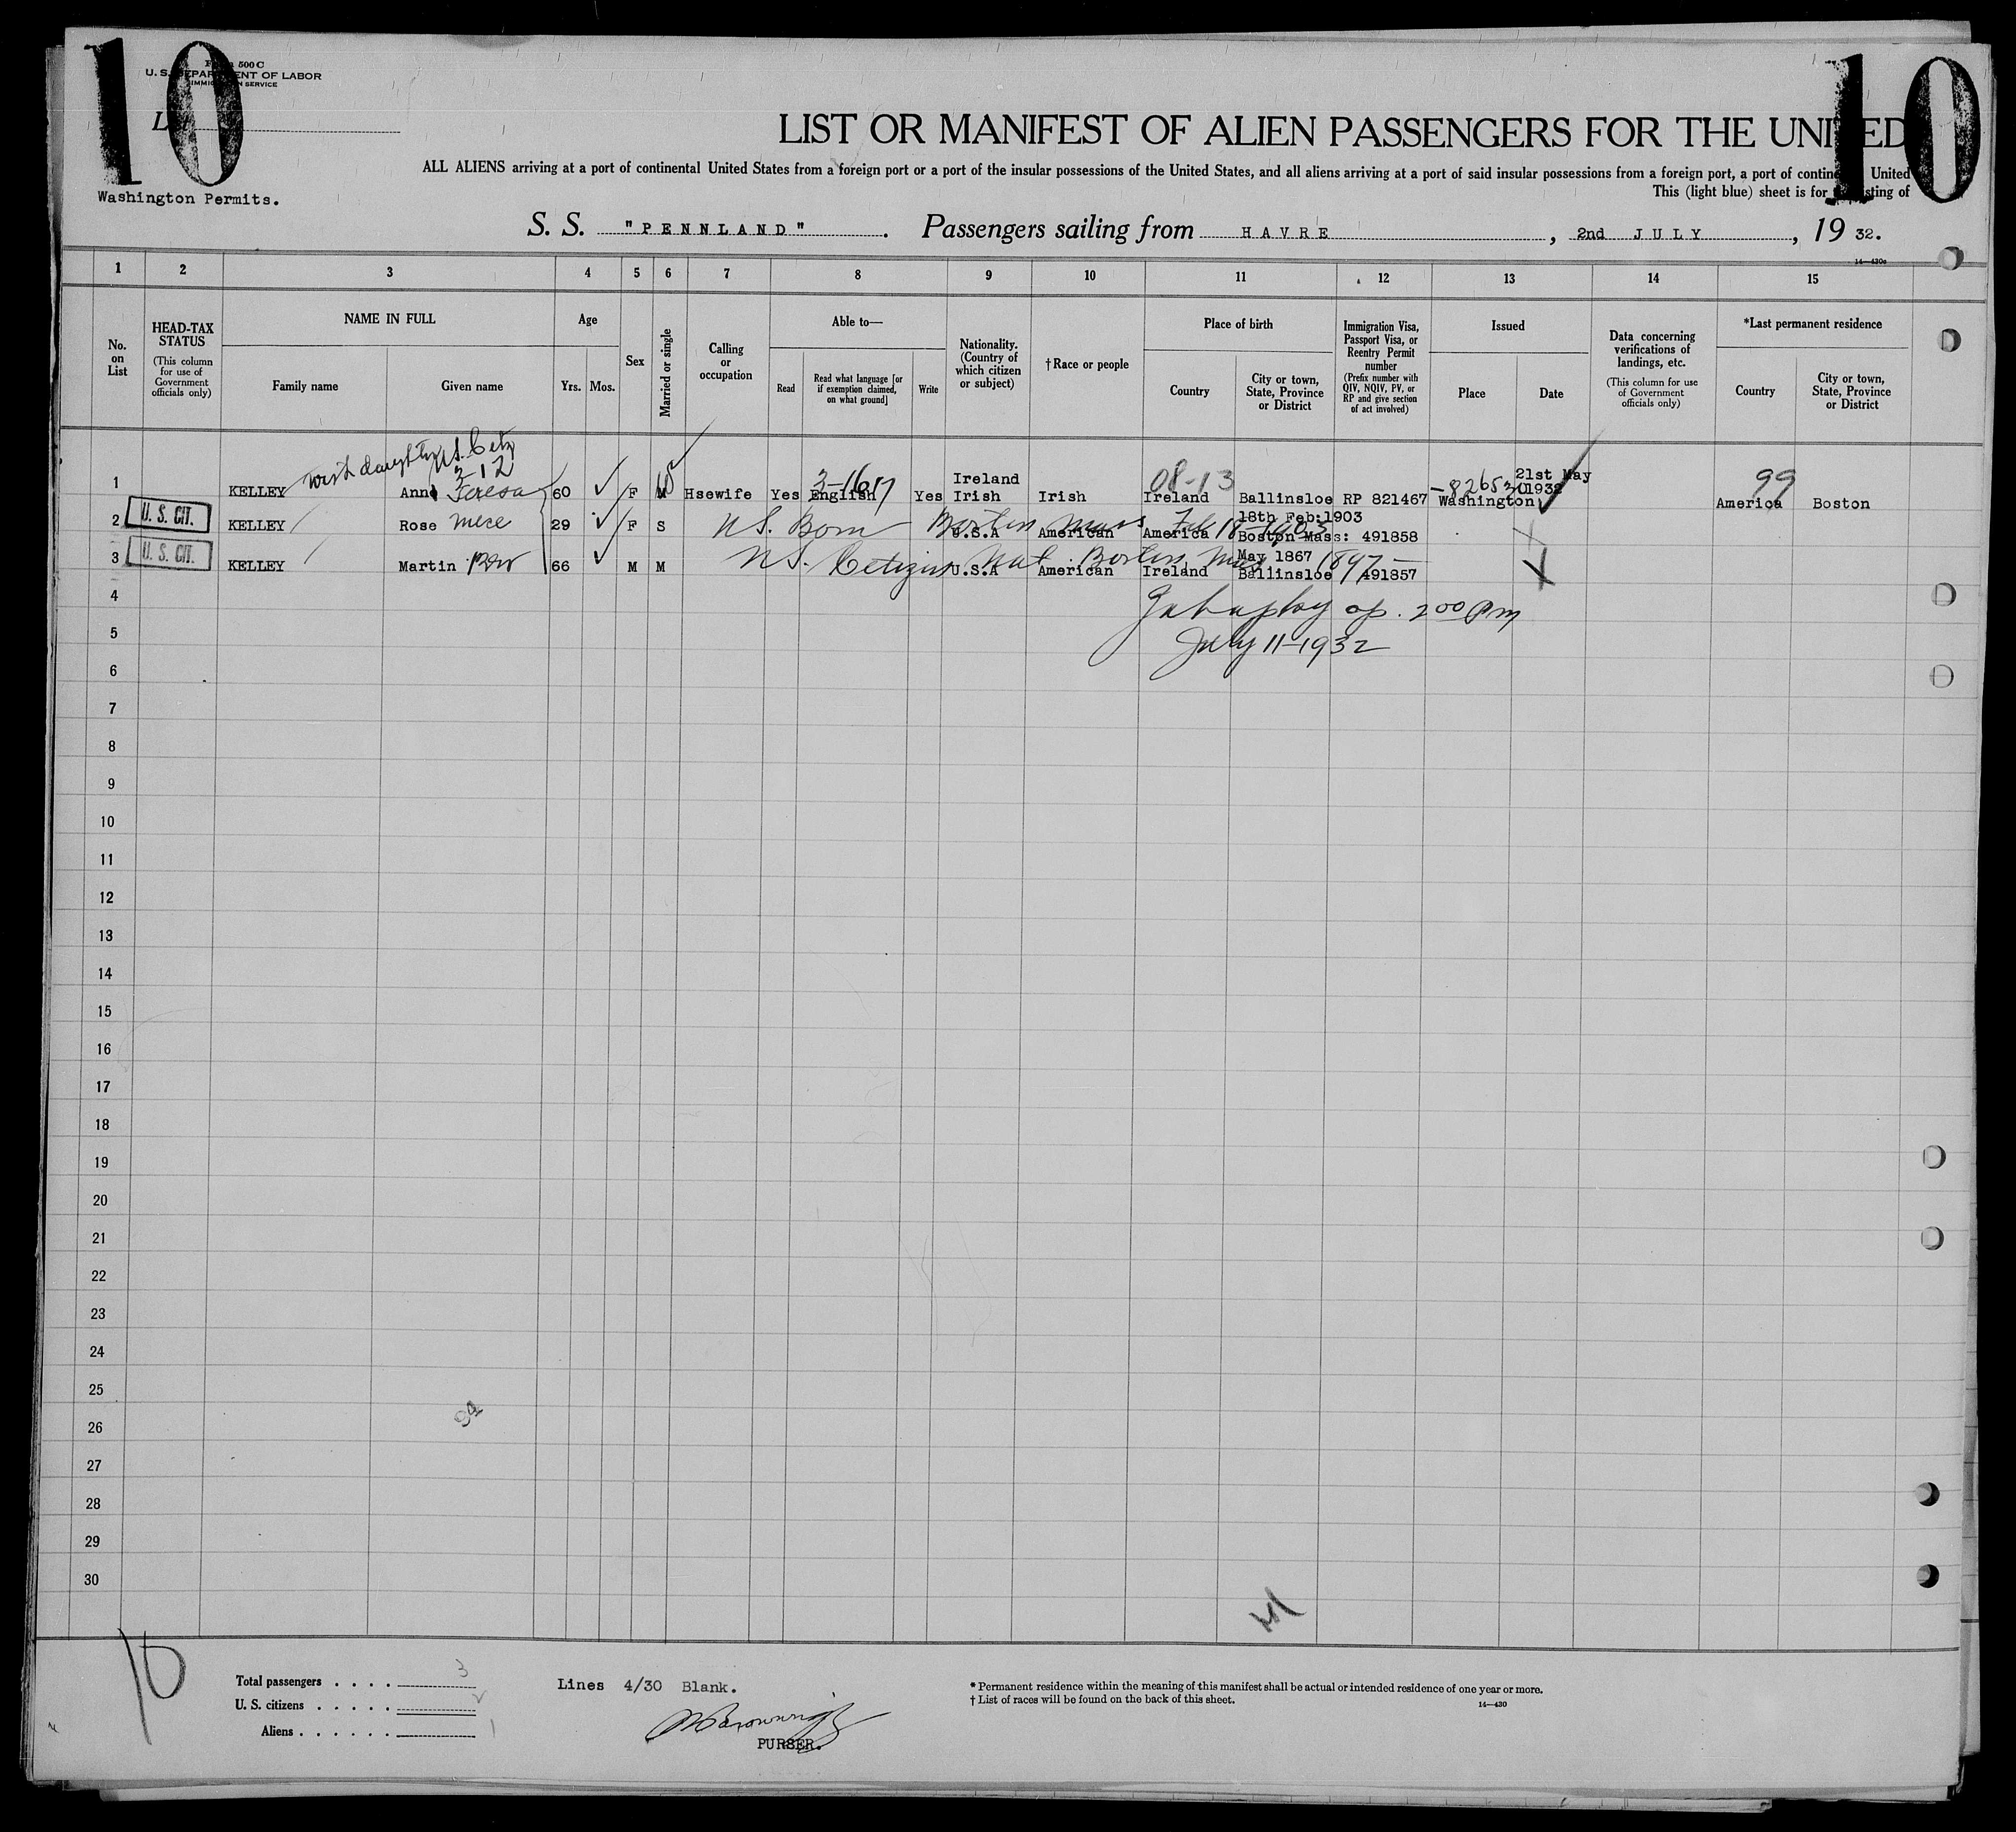 10
10
Form 500 C
U. S. DEPARTMENT OF LABOR
IMMIGRATION SERVICE
List
LIST OR MANIFEST OF ALIEN PASSENGERS FOR THE UNITED
ALL ALIENS arriving at a port of continental United States from a foreign port or a port of the insular possessions of the United States, and all aliens arriving at a port of said insular possessions from a foreign port, a port of continental United
Washington Permits.
This (light blue) sheet is for the listing of
S. S. "PENNLAND". Passengers sailing from HAVRE, 2nd JULY, 19 32.
14—430a
1 2 3 4 5 6 7 8 9 10 11 12 13 14 15
No. on List
HEAD-TAX STATUS
(This column for use of Government officials only)
NAME IN FULL
Family name
Given name
Age
Yrs. Mos.
Sex
Married or single
Calling or occupation
Able to—
Read
Read what language [or if exemption claimed, on what ground]
Write
Nationality. (Country of which citizen or subject)
†Race or people
Place of birth
Country
City or town, State, Province or District
Immigration Visa, Passport Visa, or Reentry Permit number
(Prefix number with QIV, NQIV, PV, or RP and give section of act involved)
Issued
Place
Date
Data concerning verifications of landings, etc.
(This column for use of Government officials only)
*Last permanent residence
Country
City or town, State, Province or District
with daughter U.S. Citz
3-12
3-1617
08-13
-826530
99
1 KELLEY Ann Teresa 60 F M Hsewife Yes English Yes Ireland Irish Irish Ireland Ballinsloe RP 821467 Washington 21st May 1932 America Boston
2 U. S. CIT. KELLEY Rose 29 F S U.S.A American America 18th Feb:1903 Boston Mass: 491858
U.S. Born Boston Mass Feb 18-1903
3 U. S. CIT. KELLEY Martin 66 M M U.S.A American Ireland May 1867 Ballinsloe 491857
U.S. Citizen Nat. Boston, Mass 1897
4
op. 2 00 Pm
5
July 11-1932
6
7
8
9
10
11
12
13
14
15
16
17
18
19
20
21
22
23
24
25
94
26
27
28
29
30
10
Total passengers . . . . 3
U. S. citizens . . . . . 2
Aliens . . . . . . 1
Lines 4/30 Blank.
PURSER.
* Permanent residence within the meaning of this manifest shall be actual or intended residence of one year or more.
† List of races will be found on the back of this sheet.
14—430